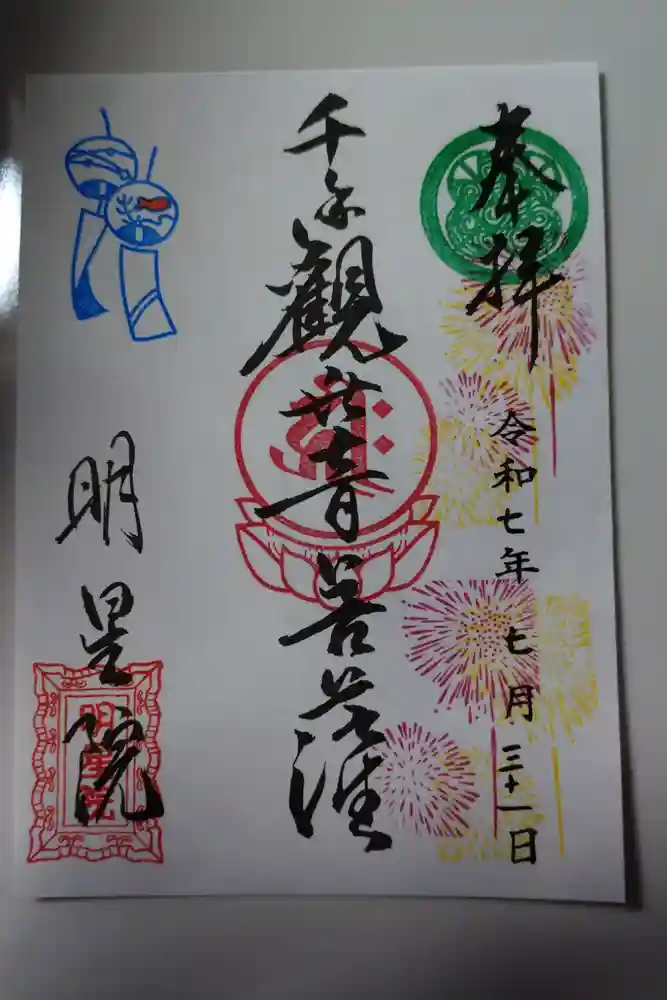 奉拝
令和七年七月三十一日
千手観世音菩薩
明星院
明星院